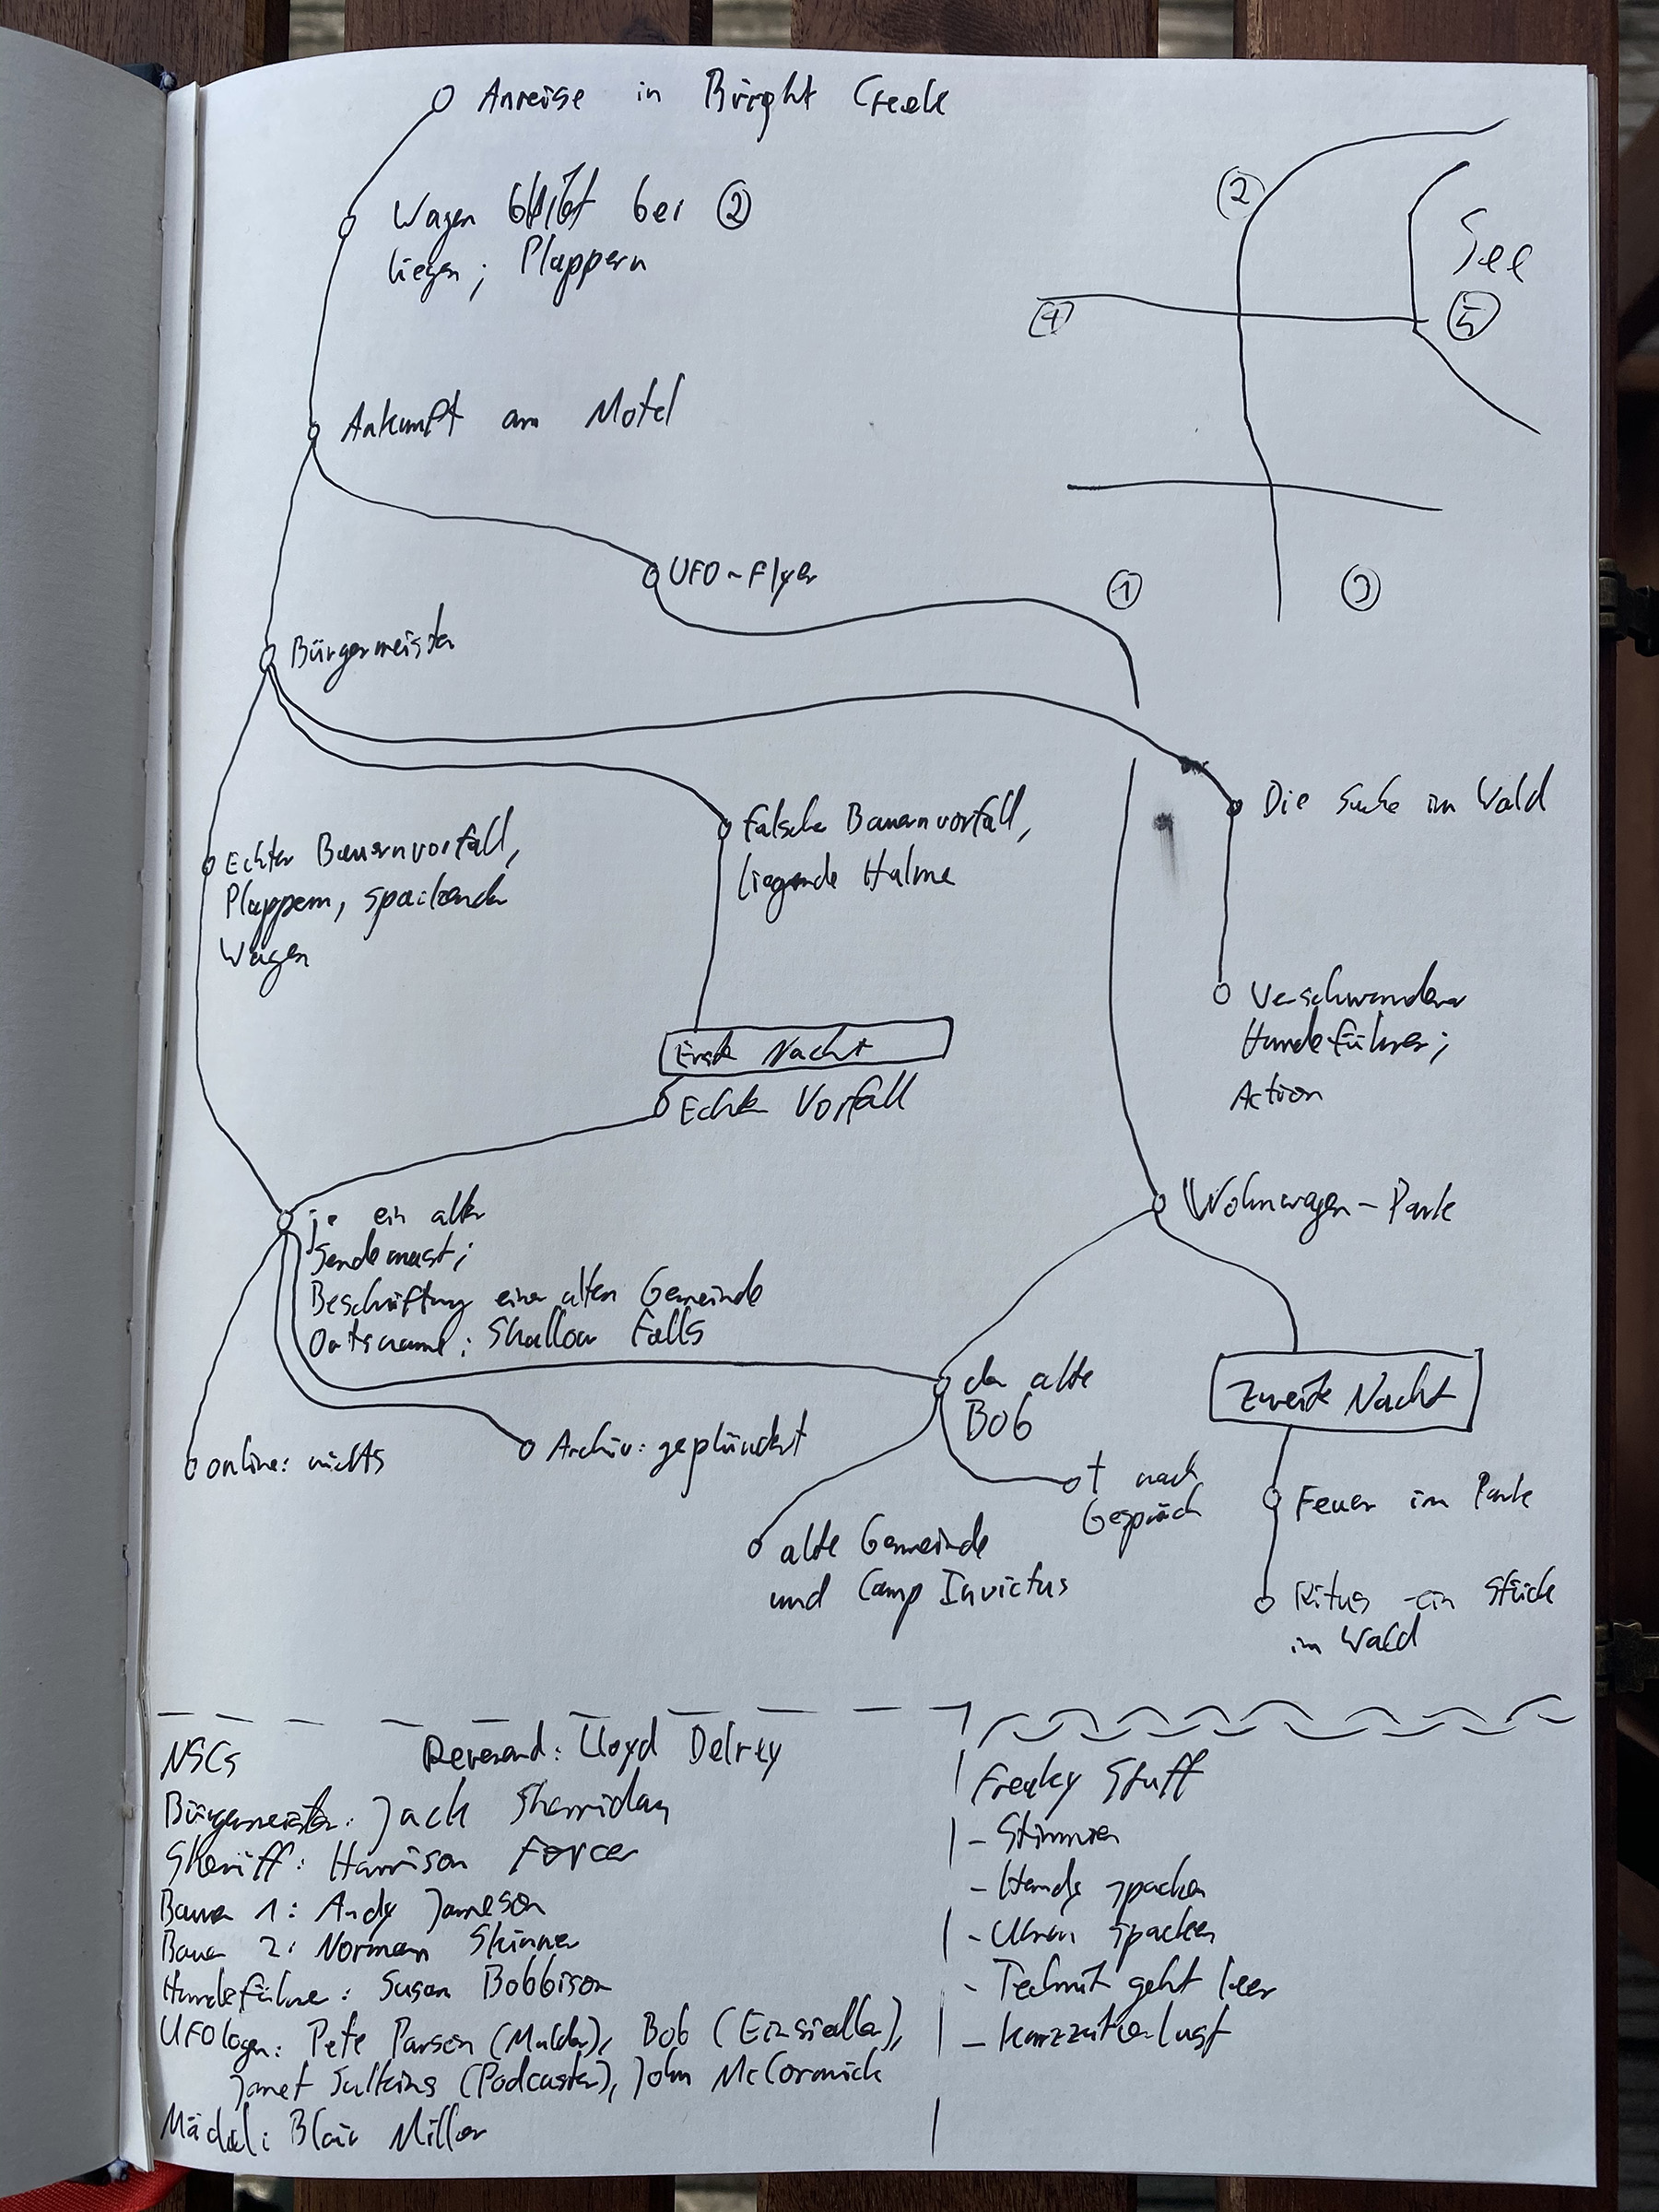 Anreise in Bright Creek
Wagen bleibt bei ②
liegen; Plappern
②
See
④
⑤
Ankunft am Motel
UFO-Flyer
①
③
Bürgermeister
Die Suche im Wald
Echter Bauernvorfall,
Plappern, spackender
Wagen
falscher Bauernvorfall,
liegende Halme
Verschwundener
Hundeführer;
Action
Erste Nacht
Echter Vorfall
Wohnwagen-Park
je ein alter
Sendemast;
Beschriftung einer alten Gemeinde
Ortsname: Shallow Falls
der alte
Bob
Zweite Nacht
online: nichts
Archiv: geplündert
† nach
Gespräch
Feuer im Park
alte Gemeinde
und Camp Invictus
Ritus ein Stück
im Wald
NSCs
Reverend: Lloyd Delrey
Bürgermeister: Jack Sherridan
Sheriff: Harrison Forcer
Bauer 1: Andy Jameson
Bauer 2: Norman Skinner
Hundeführer: Susan Bobbison
UFOlogen: Pete Parson (Mulder), Bob (Einsiedler),
Janet Julkins (Podcaster), John McCormick
Mädel: Blair Miller
Freaky Stuff
- Stimmen
- Handy spacken
- Uhren spacken
- Technik geht leer
- Kurzzeitverlust